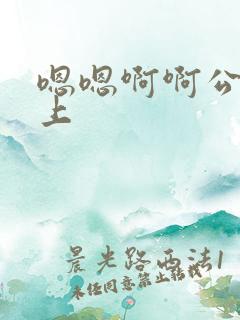 嗯嗯啊啊公
上
晨光路西法1
未经同意禁止转载